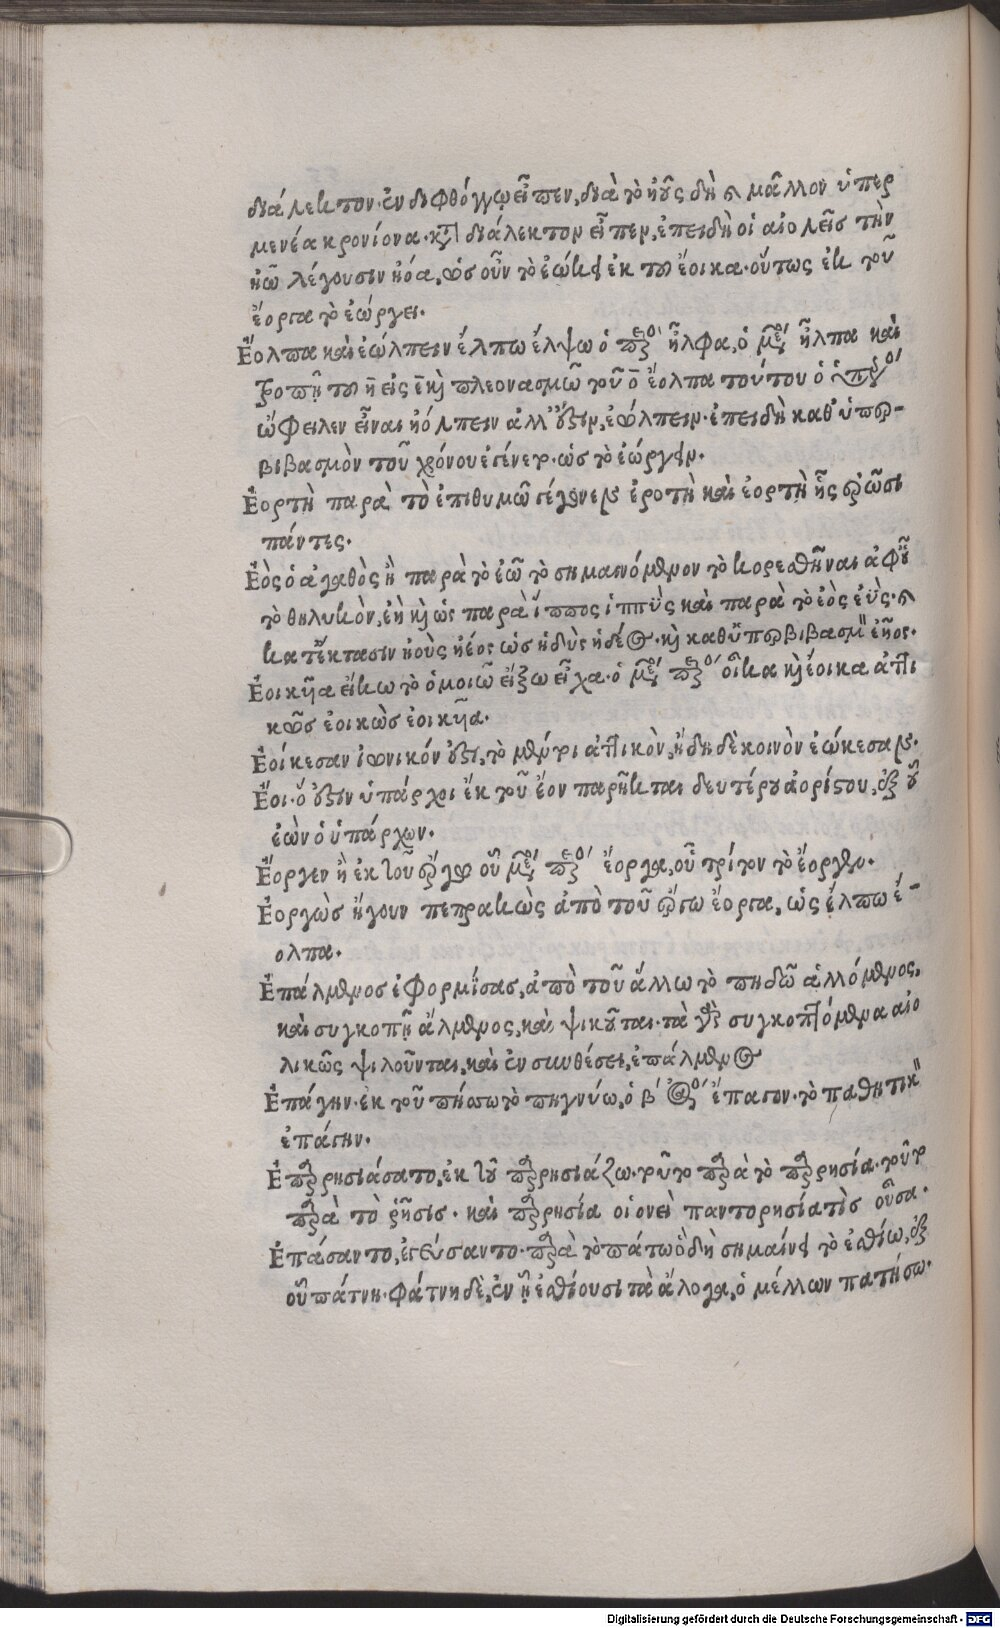 διάλεκτον. ἐν διφθόγγῳ εἶπεν, διὰ τὸ ἠῢς δὴ μᾶλλον ὑπερ
μενέα κρονίονα. διάλεκτον εἶπεν, ἐπειδὴ οἱ αἰολεῖσ τὴν
ἠῶ λέγουσιν ἠόα, ὡσ οὖν τὸ ἐώκει ἐκ του ἔοικα. οὕτως ἐκ τοῦ
ἔοργα τὸ ἐώργει.
Ἔολπα καὶ ἐώλπειν ἔλπω ἔλψω ὁ ἦλφα, ὁ μέσος ἦλπα καὶ
τροπῇ του η εἰς ε κὶ πλεονασμῶ τοῦ ο ἔολπα τούτου ὁ
ὤφειλεν εἶναι ἠόλπειν ἀλλ' ἐώλπειν. ἐπειδὴ καθ' ὑπο-
βιβασμὸν τοῦ χρόνου ἐγένετο. ὡσ τὸ ἐώργειν.
Ἑορτὴ παρὰ τὸ ἐπιθυμῶ γέγονεν ἐροτὴ καὶ ἑορτὴ ἧς ἐρῶσι
πάντες.
Ἐὸς ὁ ἀγαθὸς ἢ παρὰ τὸ ἐῶ τὸ σημαινόμενον τὸ κορεσθῆναι ἀφ' οὗ
τὸ θηλυκὸν, ἐὴ κὶ ὡς παρὰ ἵππος ἱππὺς καὶ παρὰ τὸ ἐὸς ἐῢς.
κατ' ἔκτασιν ἠοὺς ἠέος ὡσ ἡδὺς ἡδέος. κὶ καθ' ὑποβιβασμὸν ἐῆος.
Ἐοικῆα εἴκω τὸ ὁμοιῶ εἴξω εἶχα. ὁ μέσος οἶκα κὶ ἔοικα ἀττι
κῶσ ἐοικὼσ ἐοικῆα.
Ἐοίκεσαν ἰωνικόν ἐστι, τὸ μέντοι ἀττικὸν, ἤδη δὲ κοινὸν ἐώκεσαν.
Ἔοι. ὅ ἐστιν ὑπάρχοι ἐκ τοῦ ἔον παρῆκται δευτέρου ἀορίστου, ἐξ οὗ
ἐὼν ὁ ὑπάρχων.
Ἔοργεν ἢ ἐκ τοῦ ἔργω οὗ μέσος ἔοργα, οὗ τρίτον τὸ ἔοργεν.
Ἐοργὼσ ἤγουν πεπρακὼς ἀπὸ τοῦ ἔργω ἔοργα, ὡς ἔλπω ἔ-
ολπα.
Ἐπάλμενοσ ἐφορμίσας, ἀπὸ τοῦ ἅλλω τὸ πηδῶ ἁλλόμενος,
καὶ συγκοπῇ ἅλμενος, καὶ ψιλοῦται. τὰ γὰρ συγκοπτόμενα αἰο
λικῶς ψιλοῦνται, καὶ ἐν συνθέσει, ἐπάλμενος
Ἐπάγην. ἐκ τοῦ πήσσω τὸ πηγνύω, ὁ β ἔπαγον. τὸ παθητικὸν
ἐπάγην.
Ἐπαρρησιάσατο, ἐκ τοῦ παρρησιάζω. τοῦτο παρὰ τὸ παρρησία. τοῦτο
παρὰ τὸ ῥῆσισ. καὶ παρρησία οἱονεὶ παντορησία τὶσ οὖσα.
Ἐπάσαντο, ἐγεύσαντο. παρὰ τὸ πάτω ὃ δὴ σημαίνει τὸ ἐσθίω, ἐξ
οὗ πάτνη. φάτνη δὲ, ἐν ᾗ ἐσθίουσι τὰ ἄλογα, ὁ μέλλων πατήσω.
Digitalisierung gefördert durch die Deutsche Forschungsgemeinschaft - DFG